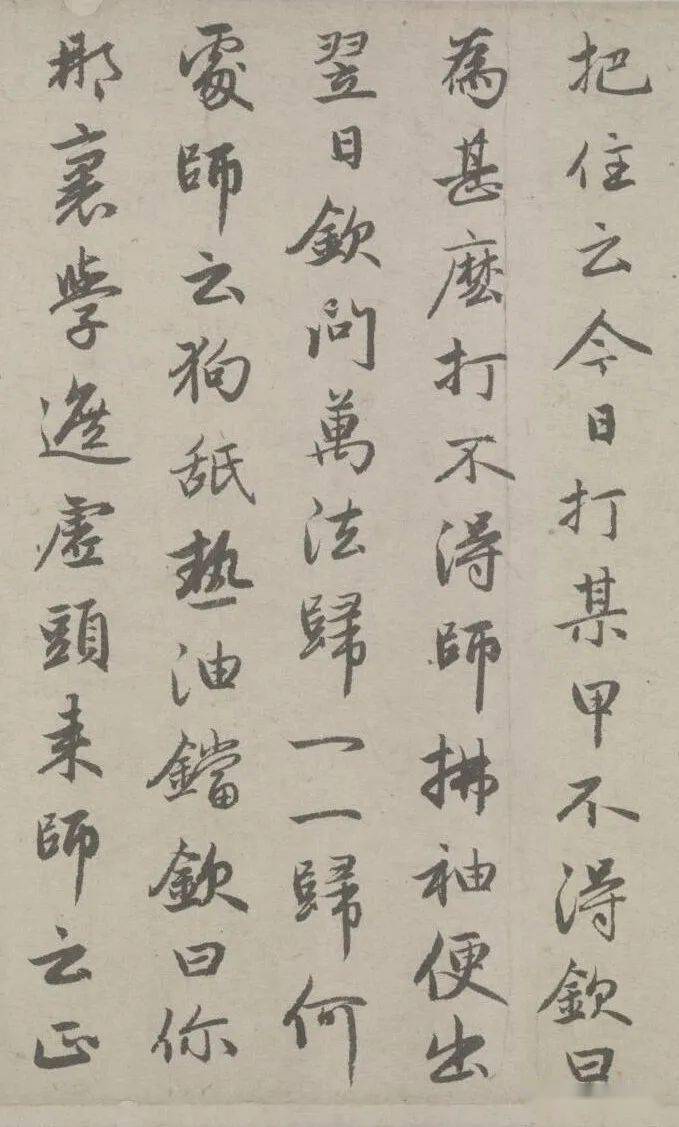 把住云今日打某甲不得欽曰
為甚麼打不得師拂袖便出
翌日欽問萬法歸一一歸何
處師云狗舐熱油鐺欽曰你
那裏學遮虛頭来師云正